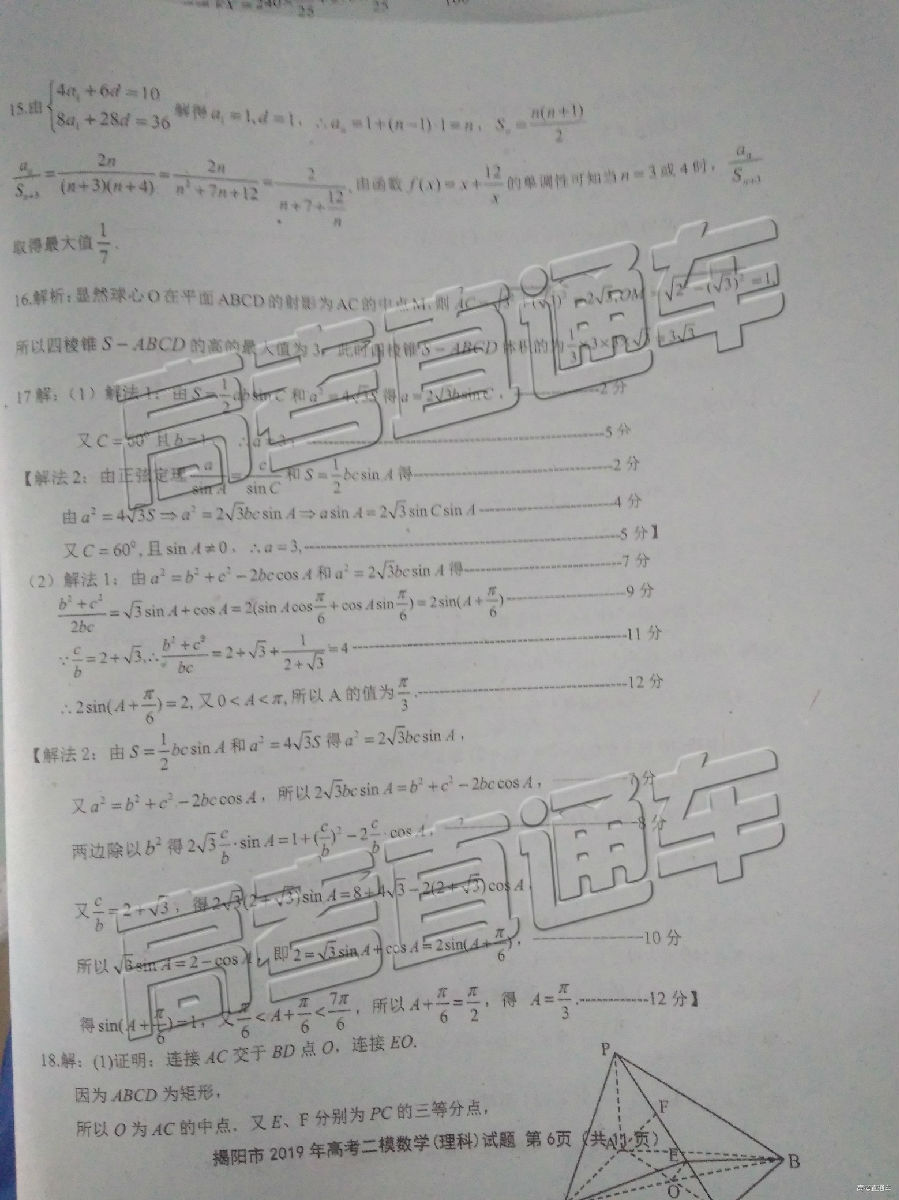 15.由{4a₁+6d=10 8a₁+28d=36 解得a₁=1,d=1, ∴aₙ=1+(n−1)·1=n, Sₙ=n(n+1)/2
aₙ/Sₙ₊₃=2n/((n+3)(n+4))=2n/(n²+7n+12)=2/(n+7+12/n),由函数f(x)=x+12/x的单调性可知当n=3或4时, aₙ/Sₙ₊₃
取得最大值1/7.
16.解析:显然球心O在平面ABCD的射影为AC的中点M,则AC= =2√3,OM= −(√3)²=1,
所以四棱锥S−ABCD的高的最大值为3,此时四棱锥S−ABCD体积的为1/3×3× =3√3
17解:(1)解法1:由S=1/2absinC和a²=4√3S得a=2√3bsinC, 2分
又C=60⁰且b=1, ∴a=3, 5分
【解法2:由正弦定理a/sinA=c/sinC和S=1/2bcsinA得 2分
由a²=4√3S⇒a²=2√3bcsinA⇒asinA=2√3sinCsinA 4分
又C=60⁰,且sinA≠0, ∴a=3, 5分】
(2)解法1:由a²=b²+c²−2bccosA和a²=2√3bcsinA得 7分
(b²+c²)/2bc=√3sinA+cosA=2(sinAcosπ/6+cosAsinπ/6)=2sin(A+π/6) 9分
∵c/b=2+√3,∴(b²+c²)/bc=2+√3+1/(2+√3)=4 11分
∴2sin(A+π/6)=2,又0<A<π,所以A的值为π/3. 12分
【解法2:由S=1/2bcsinA和a²=4√3S得a²=2√3bcsinA,
又a²=b²+c²−2bccosA,所以2√3bcsinA=b²+c²−2bccosA, 7分
两边除以b²得2√3c/b·sinA=1+(c/b)²−2c/b·cosA, 8分
又c/b=2+√3,得2√3(2+√3)sinA=8+4√3−2(2+√3)cosA,
所以√3sinA=2−cosA,即2=√3sinA+cosA=2sin(A+π/6), 10分
得sin(A+π/6)=1,又π/6<A+π/6<7π/6,所以A+π/6=π/2,得 A=π/3. 12分】
18.解:(1)证明:连接AC交于BD点O,连接EO.
因为ABCD为矩形,
所以O为AC的中点.又E、F分别为PC的三等分点,
P
F
A
E
B
O
揭阳市2019年高考二模数学(理科)试题 第6页(共11页)
高考直通车
高考直通车